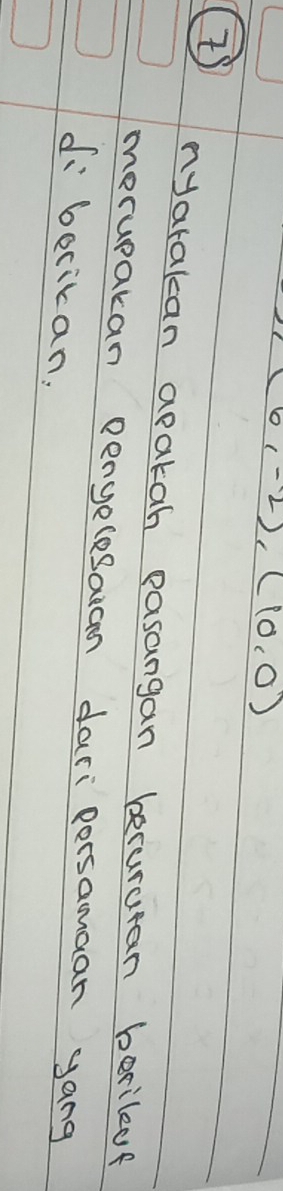 (6, -2), (10, 0)
7 nyatakan apakah pasangan berurutan berikut
merupakan penyelesaian dari persamaan yang
di berikan.